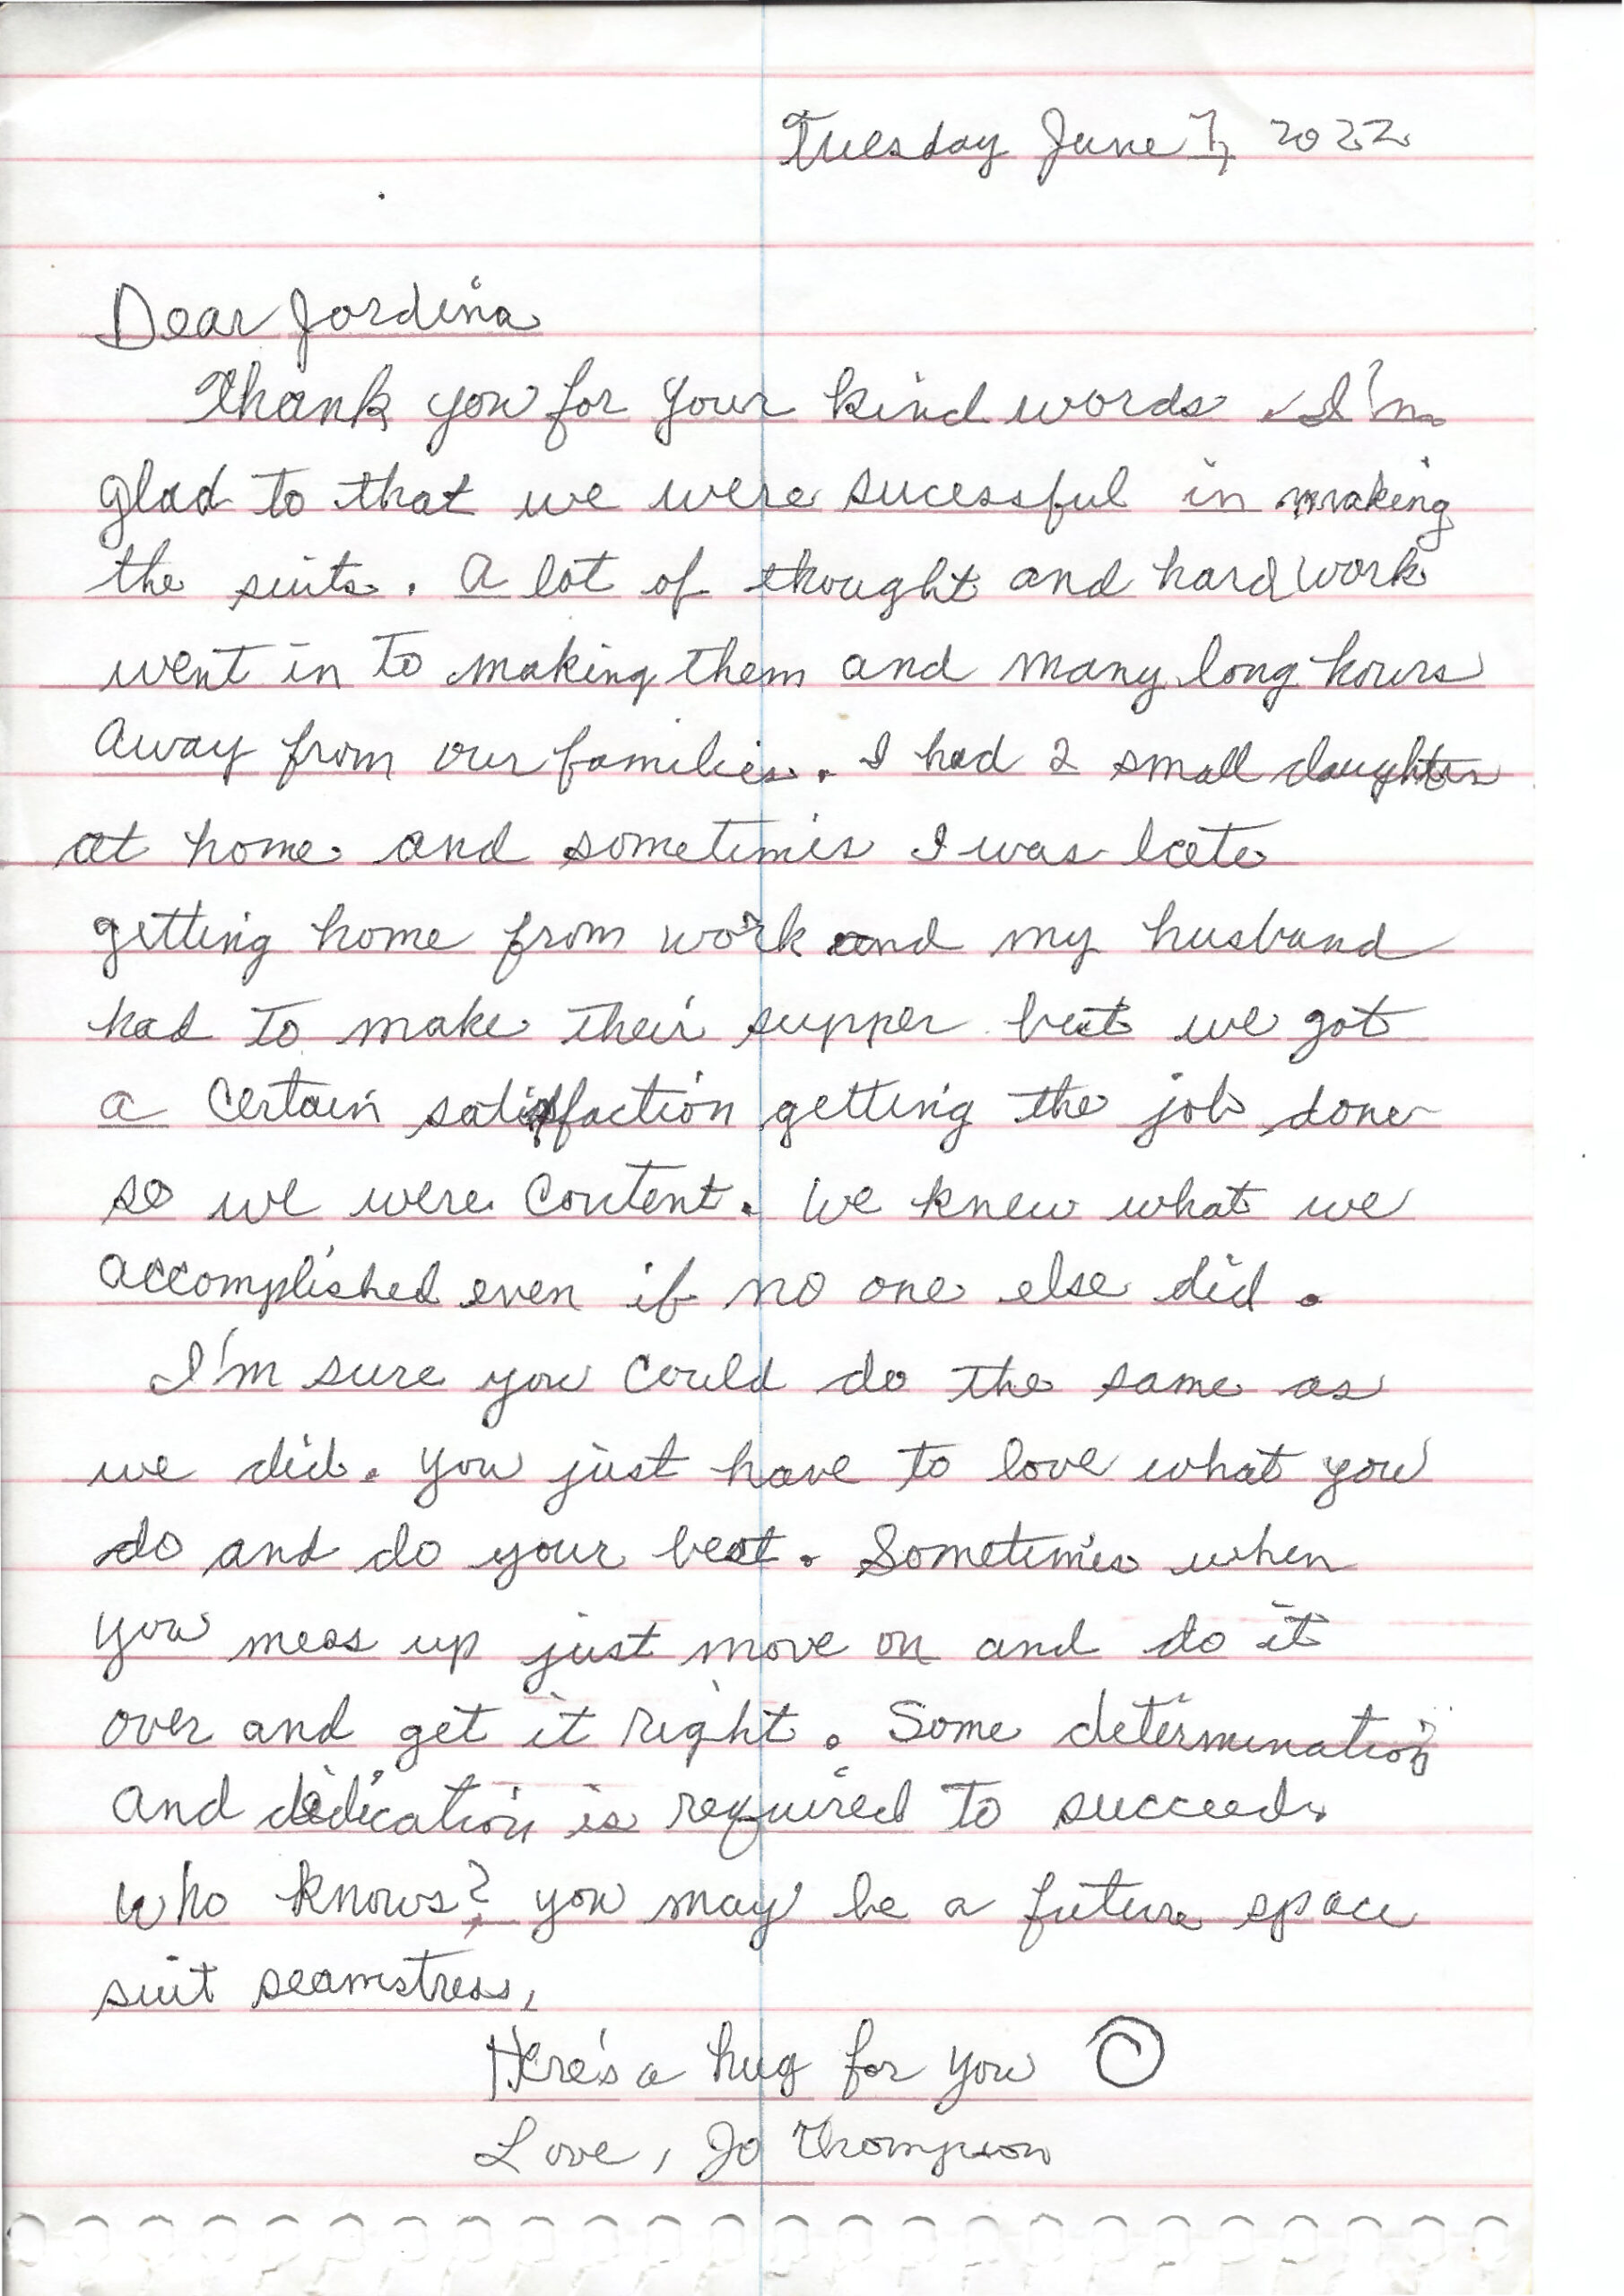 Tuesday June 7, 2022
Dear Jordina
Thank you for your kind words. I'm
glad to that we were sucessful in making
the suits. A lot of thought and hard work
went in to making them and many long hours
away from our families. I had 2 small daughters
at home and sometimes I was late
getting home from work and my husband
had to make their supper but we got
a certain satisfaction getting the job done
so we were content. We knew what we
accomplished even if no one else did.
I'm sure you could do the same as
we did. You just have to love what you
do and do your best. Sometimes when
you mess up just move on and do it
over and get it right. Some determination
and dedication is required to succeed.
Who knows? you may be a future space
suit seamstress,
Here's a hug for you
Love, Jo Thompson